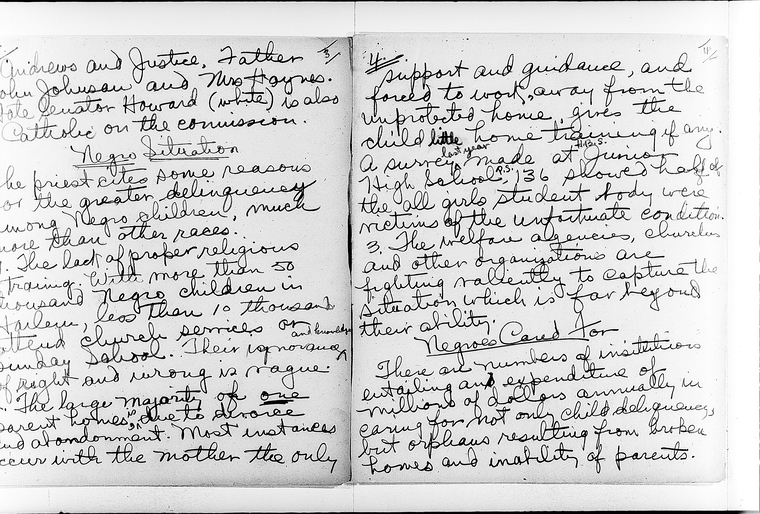 3/
Andrews and Justice, Father
ohn Johnson and Mrs Haynes.
tate senator Howard (white) is also
Catholic on the commission.
Negro Situation
he priest cites some reasons
or the greater delinquency
among Negro children, much
more than other races.
1. The lack of proper religious
traing. With more than 50
thousand Negro children in
Harlem, less than 10 thousand
attend church services or
unday School. Their ignorance and knowledge
of right and wrong is vague.
. The large majority of one
parent homes, is due to divorce
nd abandonment. Most instances
occur with the mother the only
4/
4 support and guidance, and
forced to work, away from the
unprotected home, gives the
child little home training if any.
A survey last year made at Junior H.B.S.
High School P.S. 136 showed half of
the all girls student body were
victims of the unfortunate condition.
3. The welfare agencies, churches
and other organizations are
fighting valiently to capture the
situation which is far beyond
their ability.
Negroes Cared For
There are numbers of institutions
entailing an expenditure of
millions of dollars annually in
caring for not only child deliquency,
but orphans resulting from broken
homes and inability of parents.